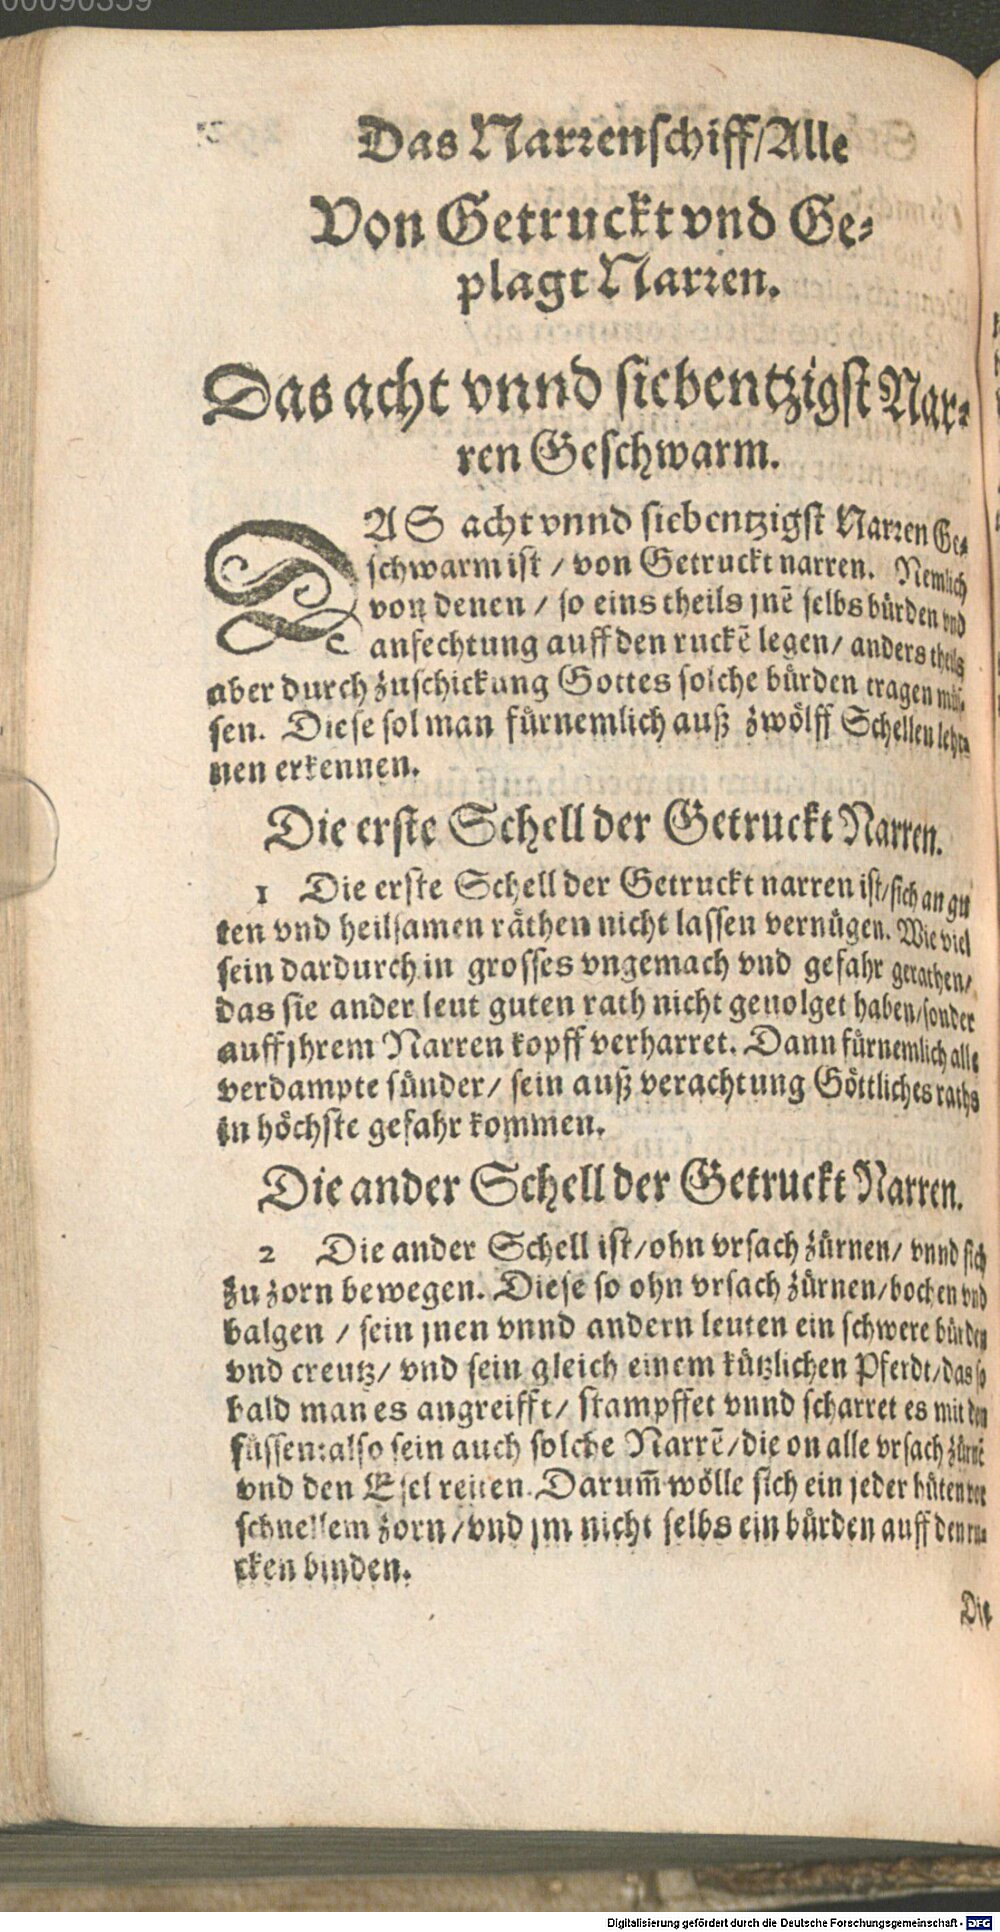 00090359
Das Narrenschiff/Alle
Von Getruckt vnd Ge-
plagt Narren.
Das acht vnnd siebentzigst Nar-
ren Geschwarm.
DAS acht vnnd siebentzigst Narren Ge-
schwarm ist / von Getruckt narren. Nemlich
von denen / so eins theils jnē selbs bürden vnd
anfechtung auff den ruckē legen / anders theils
aber durch zuschickung Gottes solche bürden tragen müs-
sen. Diese sol man fürnemlich auß zwölff Schellen lehr-
nen erkennen.
Die erste Schell der Getruckt Narren.
1 Die erste Schell der Getruckt narren ist/sich an gu
ten vnd heilsamen räthen nicht lassen vernügen. Wie viel
sein dardurch in grosses vngemach vnd gefahr gerathen/
das sie ander leut guten rath nicht geuolget haben/sonder
auff jhrem Narren kopff verharret. Dann fürnemlich alle
verdampte sünder/ sein auß verachtung Göttliches raths
in höchste gefahr kommen.
Die ander Schell der Getruckt Narren.
2 Die ander Schell ist/ohn vrsach zürnen/ vnnd sich
zu zorn bewegen. Diese so ohn vrsach zürnen/bochen vnd
balgen / sein jnen vnnd andern leuten ein schwere bürden
vnd creutz/ vnd sein gleich einem kützlichen Pferdt/das so
bald man es angreifft/ stampffet vnnd scharret es mit den
füssen: also sein auch solche Narrē/die on alle vrsach zürnē
vnd den Esel reiten. Darum̄ wölle sich ein jeder hüten vor
schnellem zorn/vnd jm nicht selbs ein bürden auff den ru-
cken binden.
Die
Digitalisierung gefördert durch die Deutsche Forschungsgemeinschaft - DFG